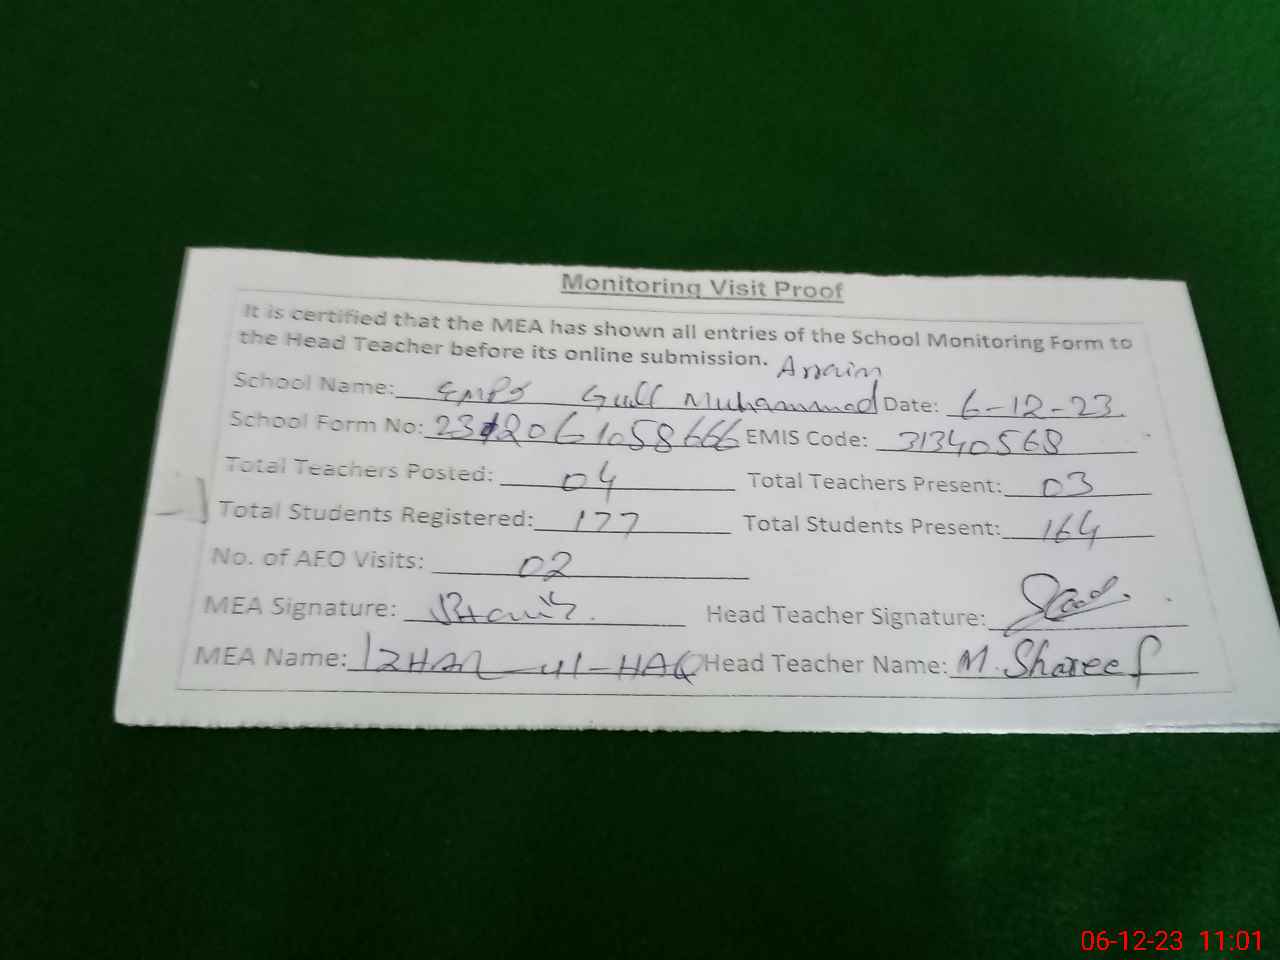 Monitoring Visit Proof
It is certified that the MEA has shown all entries of the School Monitoring Form to
the Head Teacher before its online submission. Arraim
School Name: GMPS Gull Muhammad Date: 6-12-23
School Form No: EMIS Code: 31340568
Total Teachers Posted: 04 Total Teachers Present: 03
Total Students Registered: 177 Total Students Present: 164
No. of AEO Visits: 02
MEA Signature: Head Teacher Signature:
MEA Name: IZHAR-ul-HAQ Head Teacher Name: M. Shareef
06-12-23 11:01